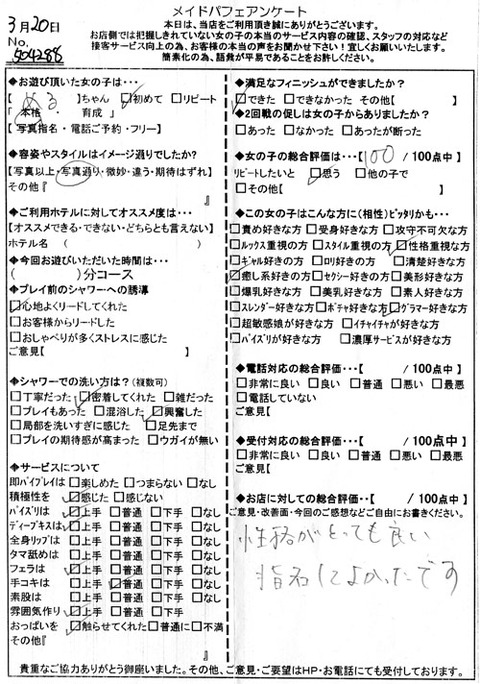 メイドパフェアンケート
3月20日
No.
504288
本日は、当店をご利用頂き誠にありがとうございます。
お店側では把握しきれていない女の子の本当のサービス内容の確認、スタッフの対応など
接客サービス向上の為、お客様の本当の声をお聞かせ下さい！宜しくお願いいたします。
簡素化の為、語彙が平易であることをお許しください。
◆お遊び頂いた女の子は･･･
【 】ちゃん □初めて □リピート
「 本格・ 育成 」
【 写真指名・電話ご予約・フリー】
◆容姿やスタイルはイメージ通りでしたか?
【写真以上・写真通り・微妙・違う・期待はずれ】
その他『 』
◆ご利用ホテルに対してオススメ度は･･･
【オススメできる・できない・どちらとも言えない】
ホテル名 ( )
◆今回お遊びいただいた時間は･･･
( )分コース
◆プレイ前のシャワーへの誘導
□心地よくリードしてくれた
□お客様からリードした
□おしゃべりが多くストレスに感じた
ご意見【 】
◆シャワーでの洗い方は？(複数可)
□丁寧だった □密着してくれた □雑だった
□プレイもあった □混浴した □興奮した
□局部を洗いすぎに感じた □足先まで
□プレイの期待感が高まった □ウガイが無い
◆サービスについて
即パイプレイは□楽しめた □つまらない □なし
積極性を □感じた □感じない
パイズリは □上手 □普通 □下手 □なし
ディープキスは□上手 □普通 □下手 □なし
全身リップは □上手 □普通 □下手 □なし
タマ舐めは □上手 □普通 □下手 □なし
フェラは □上手 □普通 □下手 □なし
手コキは □上手 □普通 □下手 □なし
素股は □上手 □普通 □下手 □なし
雰囲気作り □上手 □普通 □下手
おっぱいを □触らせてくれた □普通に □不満
その他『 』
◆満足なフィニッシュができましたか？
□できた □できなかった その他【 】
◆2回戦の促しは女の子からありましたか？
□あった □なかった □あったが断った
◆女の子の総合評価は･･･【 100 / 100点中 】
リピートしたいと □思う □他の子で
□その他【 】
◆この女の子はこんな方に(相性)ピッタリかも･･･
□責め好きな方 □受身好きな方 □攻守不可欠な方
□ルックス重視の方 □スタイル重視の方 □性格重視な方
□ギャル好きの方 □ロリ好きの方 □清楚好きな方
□癒し系好きの方 □セクシー好きの方 □美形好きな方
□爆乳好きな方 □美乳好きな方 □素人好きな方
□スレンダー好きな方 □ポチャ好きな方 □グラマー好きな方
□超敏感娘が好きな方 □イチャイチャが好きな方
□パイズリが好きな方 □濃厚サービスが好きな方
◆電話対応の総合評価･･･【 / 100点中 】
□非常に良い □良い □普通 □悪い □最悪
□電話していない
ご意見【
◆受付対応の総合評価･･･【 / 100点中 】
□非常に良い □良い □普通 □悪い □最悪
ご意見【
◆お店に対しての総合評価･･【 / 100点中 】
ご意見・改善面・今回のご感想などご自由にお書きください。
性格がとっても良い
指名してよかったです
貴重なご協力ありがとう御座いました。その他、ご意見・ご要望はHP・お電話にても受付しております。